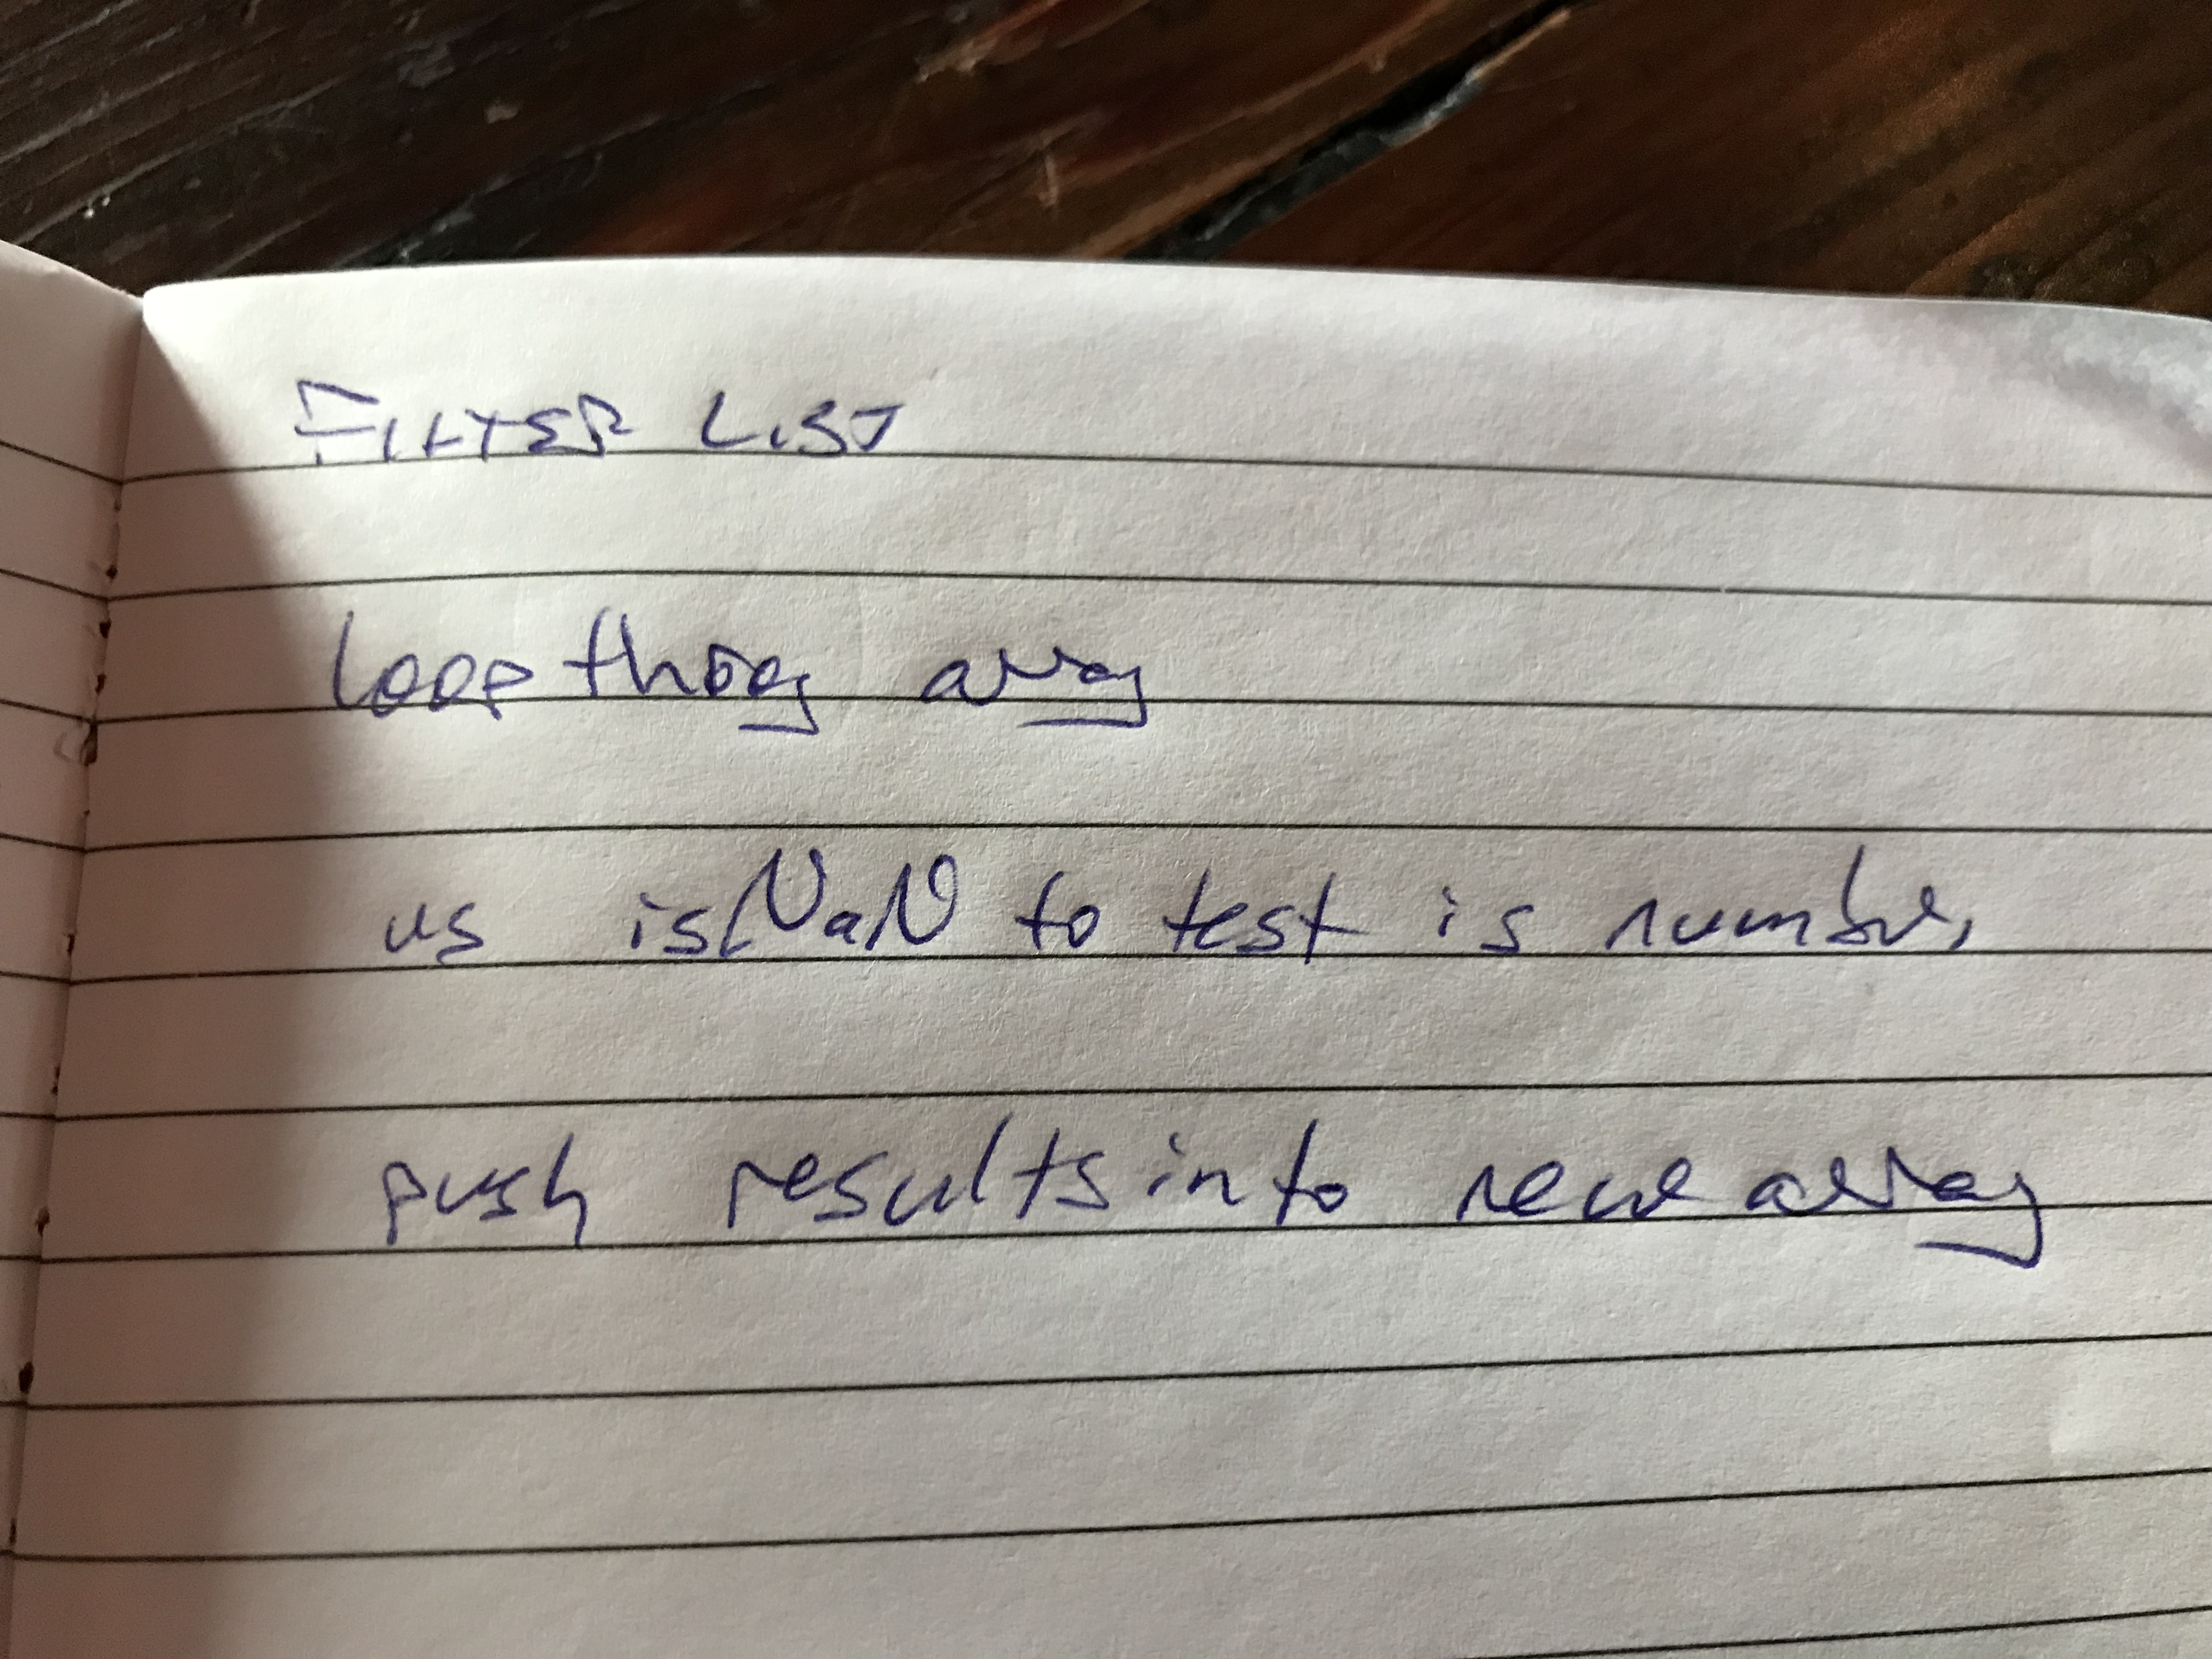 FILTER LIST
loop throg array
us isNaN to test is number,
push results into neue array